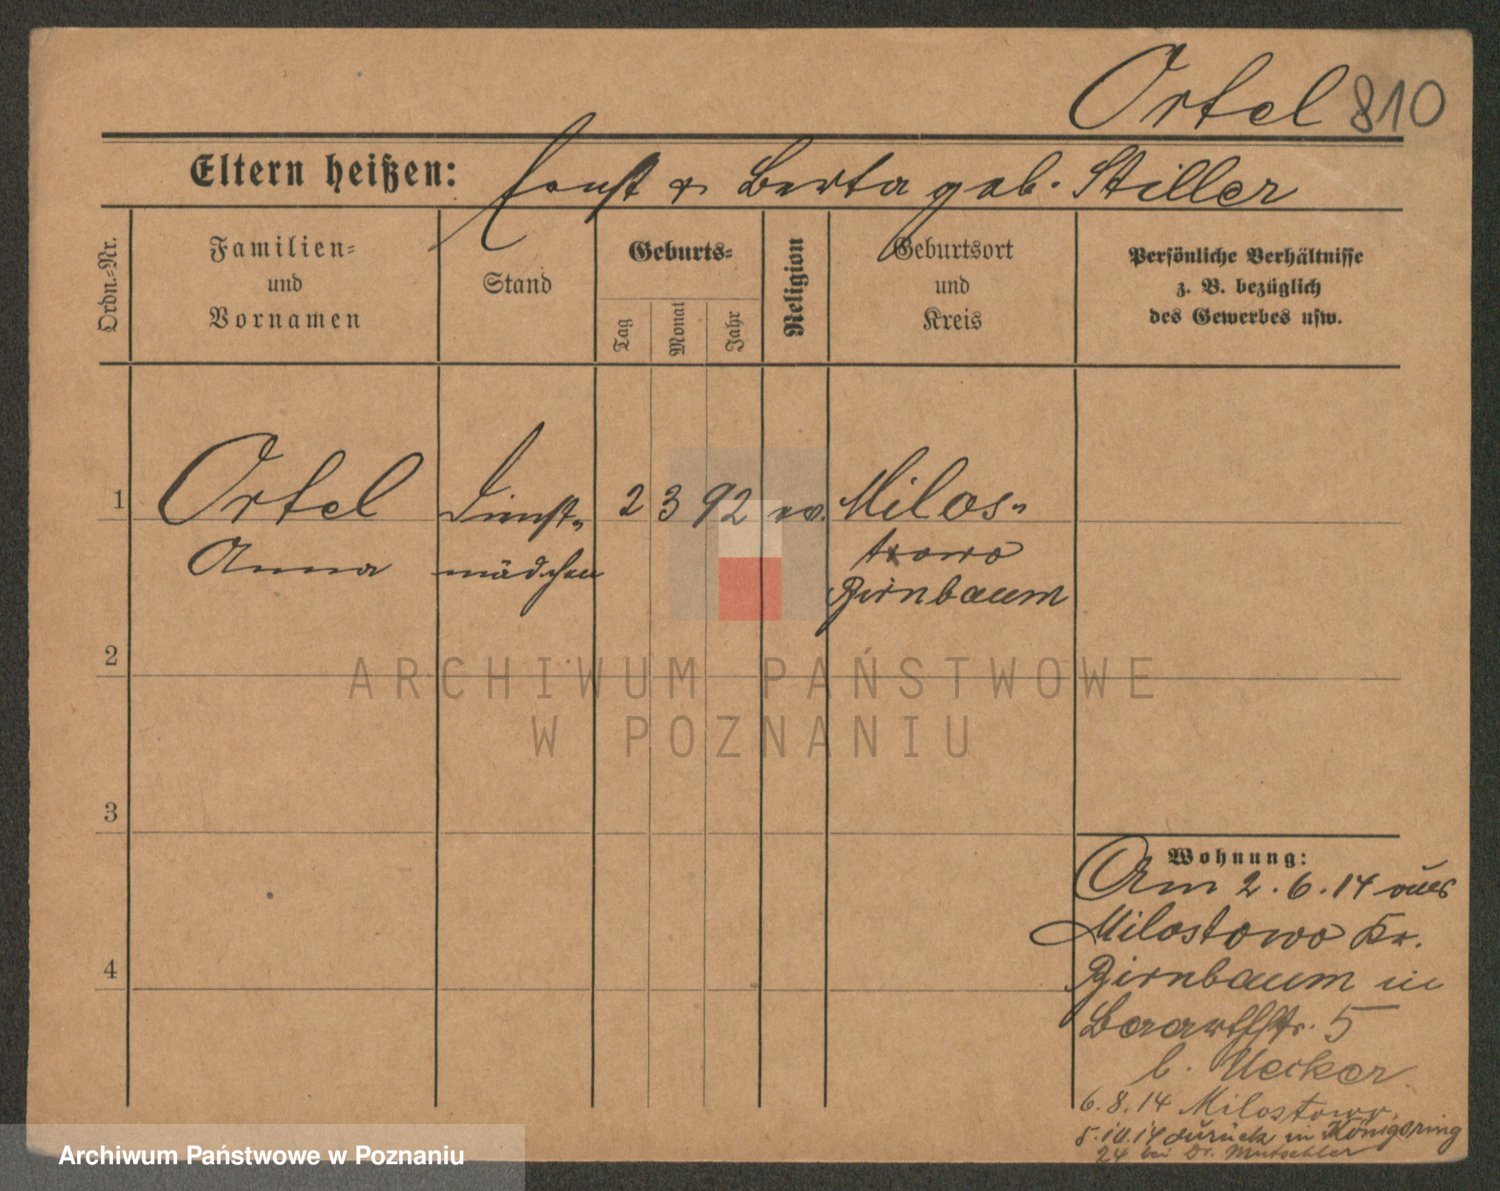 Ortel 810
Eltern heißen: Ernst & Berta geb. Stiller
Ordn.=Nr.
Familien=
und
Vornamen
Stand
Geburts=
Tag
Monat
Jahr
Religion
Geburtsort
und
Kreis
Persönliche Verhältnisse
z. B. bezüglich
des Gewerbes usw.
1
Ortel
Anna
Dienst=
mädchen
2 3 92 ev.
Milos=
towo
Birnbaum
2
3
4
Wohnung:
Am 2.6.14 aus
Milostowo Kr.
Birnbaum in
5
b. Uecker
6.8.14 Milostowo.
5.10.14 zurück in Königsring
24 bei Dr. Mutschler
ARCHIWUM PAŃSTWOWE
W POZNANIU
Archiwum Państwowe w Poznaniu